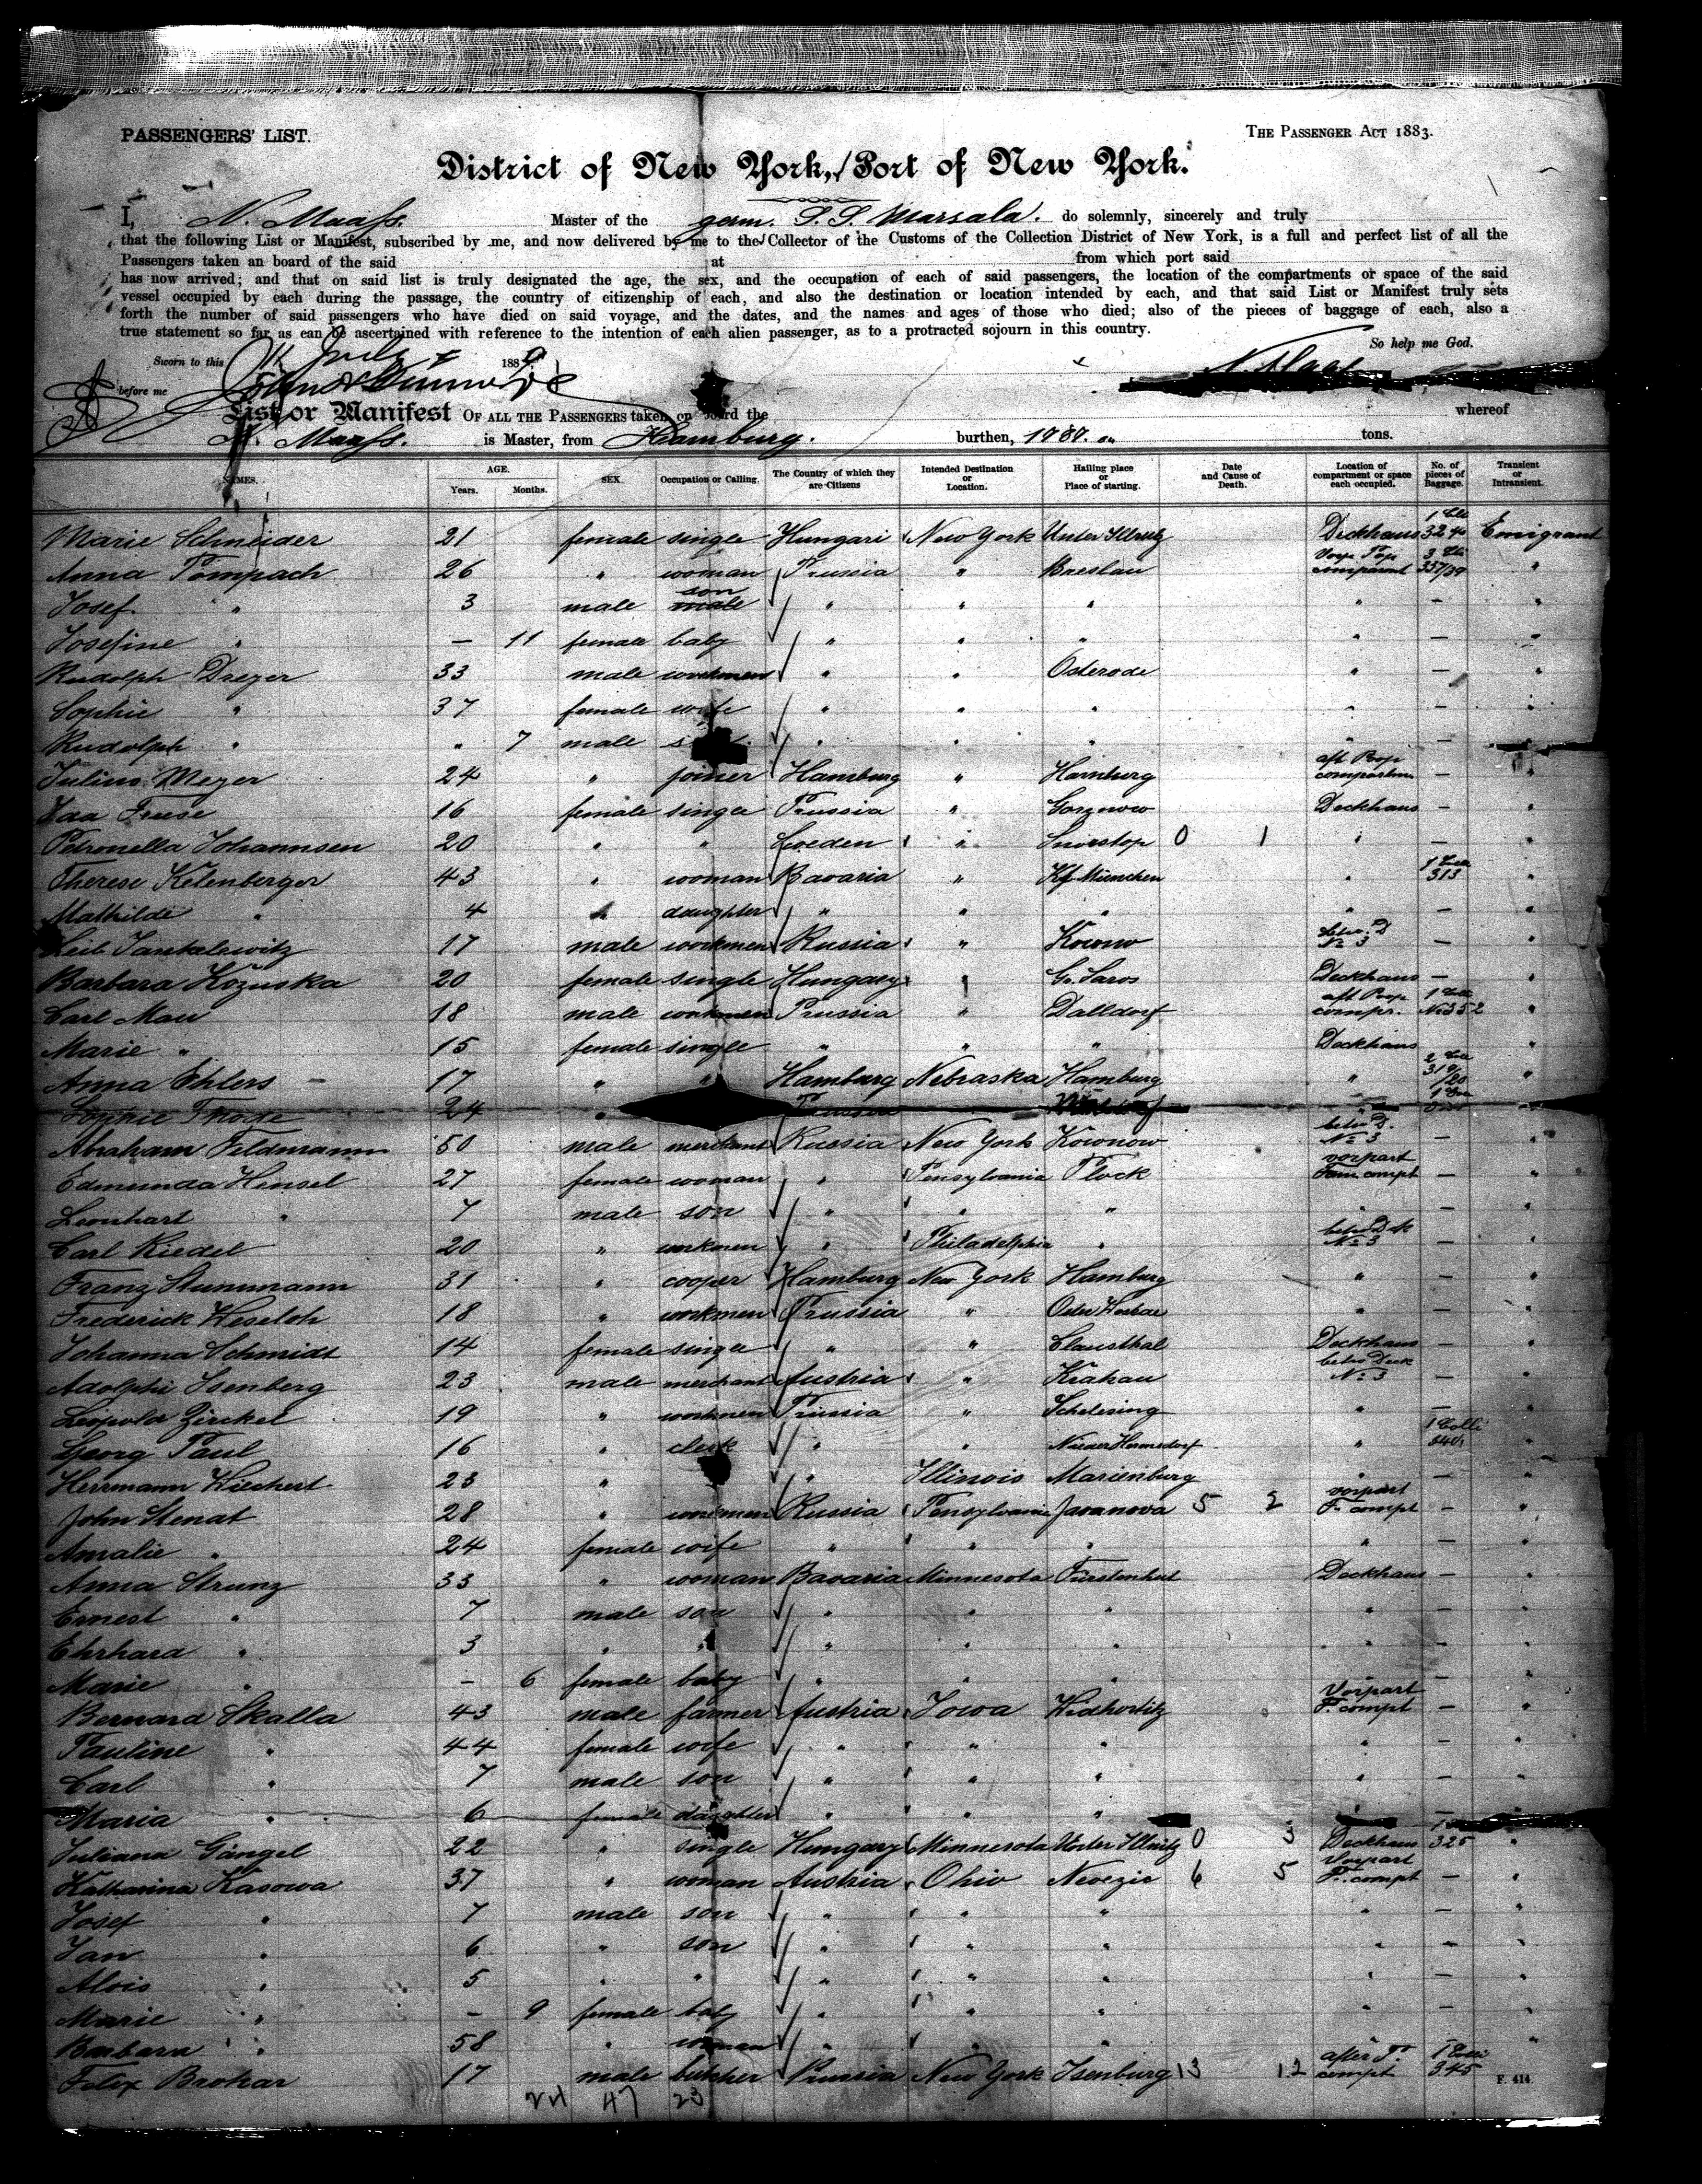 PASSENGERS' LIST.
THE PASSENGER ACT 1883.
District of New York, Port of New York.
I, N. Maass. Master of the germ. S.S. Marsala. do solemnly, sincerely and truly
that the following List or Manifest, subscribed by me, and now delivered by me to the Collector of the Customs of the Collection District of New York, is a full and perfect list of all the
Passengers taken an board of the said at from which port said
has now arrived; and that on said list is truly designated the age, the sex, and the occupation of each of said passengers, the location of the compartments or space of the said
vessel occupied by each during the passage, the country of citizenship of each, and also the destination or location intended by each, and that said List or Manifest truly sets
forth the number of said passengers who have died on said voyage, and the dates, and the names and ages of those who died; also of the pieces of baggage of each, also a
true statement so far as can be ascertained with reference to the intention of each alien passenger, as to a protracted sojourn in this country.
So help me God.
Sworn to this July 188
before me
List or Manifest OF ALL THE PASSENGERS taken on board the whereof
N. Maass. is Master, from Hamburg. burthen, tons.
NAMES. AGE. Years. Months. SEX. Occupation or Calling. The Country of which they are Citizens Intended Destination or Location. Hailing place or Place of starting. Date and Cause of Death. Location of compartment or space each occupied. No. of pieces of Baggage. Transient or Intransient.
Marie Schneider 21 female single Hungari New York Unter Deckhaus Emigrant
Anna Pompach 26 " woman Prussia " Breslau 337/39 "
Josef " 3 male son " " " " — "
Josefine " — 11 female baby " " " " — "
Rudolph Dreger 33 male workmen " " Osterode " — "
Sophie " 37 female wife " " " " — "
Rudolph " " 7 male " " " " — "
Julius Meyer 24 " joiner Hamburg " Hamburg aft Poop — "
Ida Freese 16 female single Prussia " Gorznow Deckhaus — "
Petronella Johannsen 20 " " " 0 1 " — "
Therese Kelenberger 43 " woman Bavaria " Muenchen " 313 "
Mathilde " 4 " daughter " " " " — "
Leib Jankelewitz 17 male workmen Russia " Kowno No 3 — "
Barbara Kozuska 20 female single Hungary " Gr. Saros Deckhaus — "
Carl Mau 18 male workmen Prussia " Dalldorf aft Poop compr. No 352 "
Marie " 15 female single " " " Deckhaus "
Anna Ehlers 17 " " Hamburg Nebraska Hamburg " "
Sophie Thode 24 "
Abraham Feldmann 50 male merchant Russia New York Kownow No 3 — "
Edmunda Hensel 27 female woman " Pensylvania Plock vorpart compt — "
Leonhart " 7 male son " " " " — "
Carl Riedel 20 " workmen " Philadelphia " No 3 — "
Franz Stunmann 31 " cooper Hamburg New York Hamburg " — "
Frederick Weseloh 18 " workmen Prussia " Oster " — "
Johanna Schmidt 14 female single " " Clausthal Deckhaus — "
Adolph Isenberg 23 male merchant Austria " Krakau No 3 — "
Leopold Zirckel 19 " workmen Prussia " " — "
Georg Paul 16 " clerk " " Nieder Hermsdorf " 1 Colli "
Herrmann Wiechert 23 " " Illinois Marienburg " — "
John Stenat 28 " workmen Russia Pensylvania Javanova 5 2 vorpart F. compt — "
Amalie " 24 female wife " " " " — "
Anna Strunz 33 " woman Bavaria Minnesota Fürstenhut Deckhaus — "
Ernest " 7 male son " " " " — "
Ehrhard " 3 " " " " " " — "
Marie " — 6 female baby " " " " — "
Bernard Skalla 43 male farmer Austria Iowa Vorpart F. compt — "
Pauline " 44 female wife " " " " — "
Carl " 7 male son " " " " — "
Maria " 6 female daughter " " " " — "
Juliana Gängel 22 " single Hungary Minnesota Unter 0 3 Deckhaus 325 "
Katharina Kasowa 37 " woman Austria Ohio 6 5 Vorpart F. compt — "
Josef " 7 male son " " " " — "
Jan " 6 " son " " " " — "
Alois " 5 " " " " " " — "
Marie " — 9 female baby " " " " — "
Barbara " 58 " woman " " " "
Felix Brokar 17 male butcher Prussia New York Isenburg 13 12 compt 345
F. 414.
24 47 23